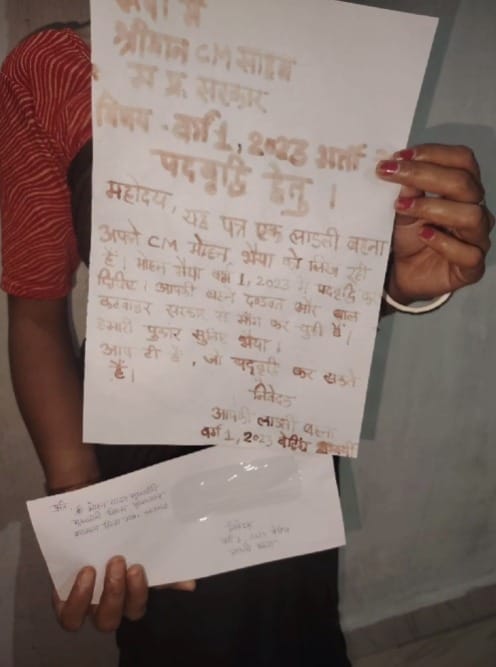 सेवा में
श्रीमान CM साहब
म प्र. सरकार
विषय - वर्ग 1, 2023 भर्ती
पदवृद्धि हेतु ।
महोदय, यह पत्र एक लाडली बहना
अपने CM मोहन भैया को लिख रही
है । मोहन भैया वर्ग 1, 2023 में पदवृद्धि कर
दीजिए । आपकी बहन दण्डवत और बाल
करवाकर सरकार से मांग कर चुकी है ।
हमारी पुकार सुनिए भैया ।
आप ही है , जो पदवृद्धि कर सकते
हैं ।
निवेदक
आपकी लाडली बहना
वर्ग 1, 2023 वेटिंग
प्रति, श्री मोहन यादव
निवेदक
वर्ग 1, 2023 वेटिंग